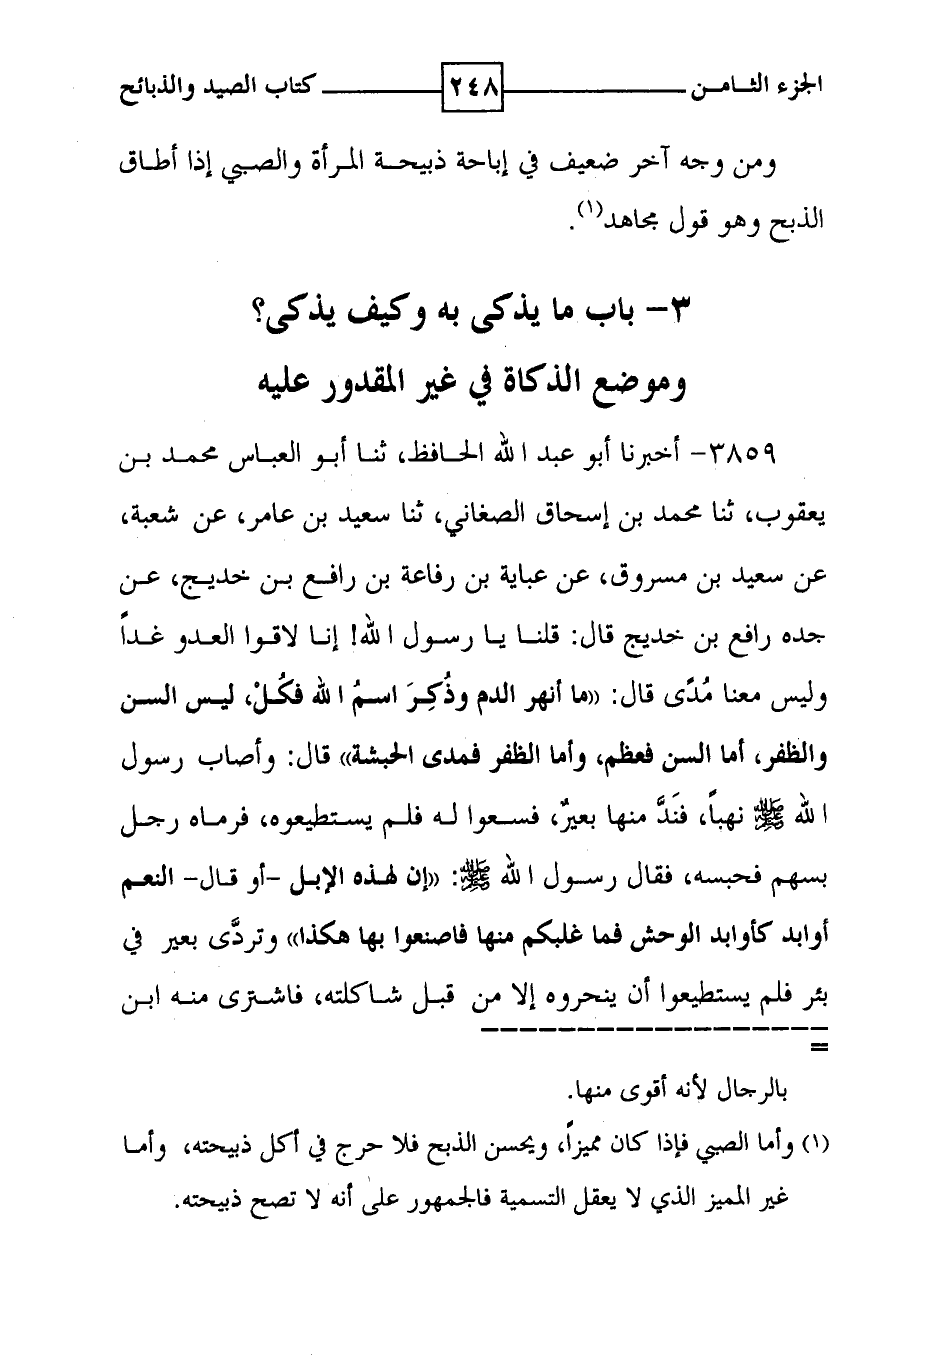 الجزء الثامن ٢٤٨ كتاب الصيد والذبائح
ومن وجه آخر ضعيف في إباحة ذبيحة المرأة والصبي إذا أطاق
الذبح وهو قول مجاهد(١).
٣- باب ما يذكى به وكيف يذكى؟
وموضع الذكاة في غير المقدور عليه
٣٨٥٩- أخبرنا أبو عبد الله الحافظ، ثنا أبو العباس محمد بن
يعقوب، ثنا محمد بن إسحاق الصغاني، ثنا سعيد بن عامر، عن شعبة،
عن سعيد بن مسروق، عن عباية بن رفاعة بن رافع بن خديج، عن
جده رافع بن خديج قال: قلنا يا رسول الله! إنا لاقوا العدو غداً
وليس معنا مُدًى قال: «ما أنهر الدم وذُكِرَ اسمُ الله فكُلْ، ليس السن
والظفر، أما السن فعظم، وأما الظفر فمدى الحبشة» قال: وأصاب رسول
الله ﷺ نهباً، فَندَّ منها بعيرٌ، فسعوا له فلم يستطيعوه، فرماه رجل
بسهم فحبسه، فقال رسول الله ﷺ: «إن لهذه الإبل -أو قال- النعم
أوابد كأوابد الوحش فما غلبكم منها فاصنعوا بها هكذا» وتردَّى بعير في
بئر فلم يستطيعوا أن ينحروه إلا من قبل شاكلته، فاشترى منه ابن
=
بالرجال لأنه أقوى منها.
(١) وأما الصبي فإذا كان مميزاً، ويحسن الذبح فلا حرج في أكل ذبيحته، وأما
غير المميز الذي لا يعقل التسمية فالجمهور على أنه لا تصح ذبيحته.